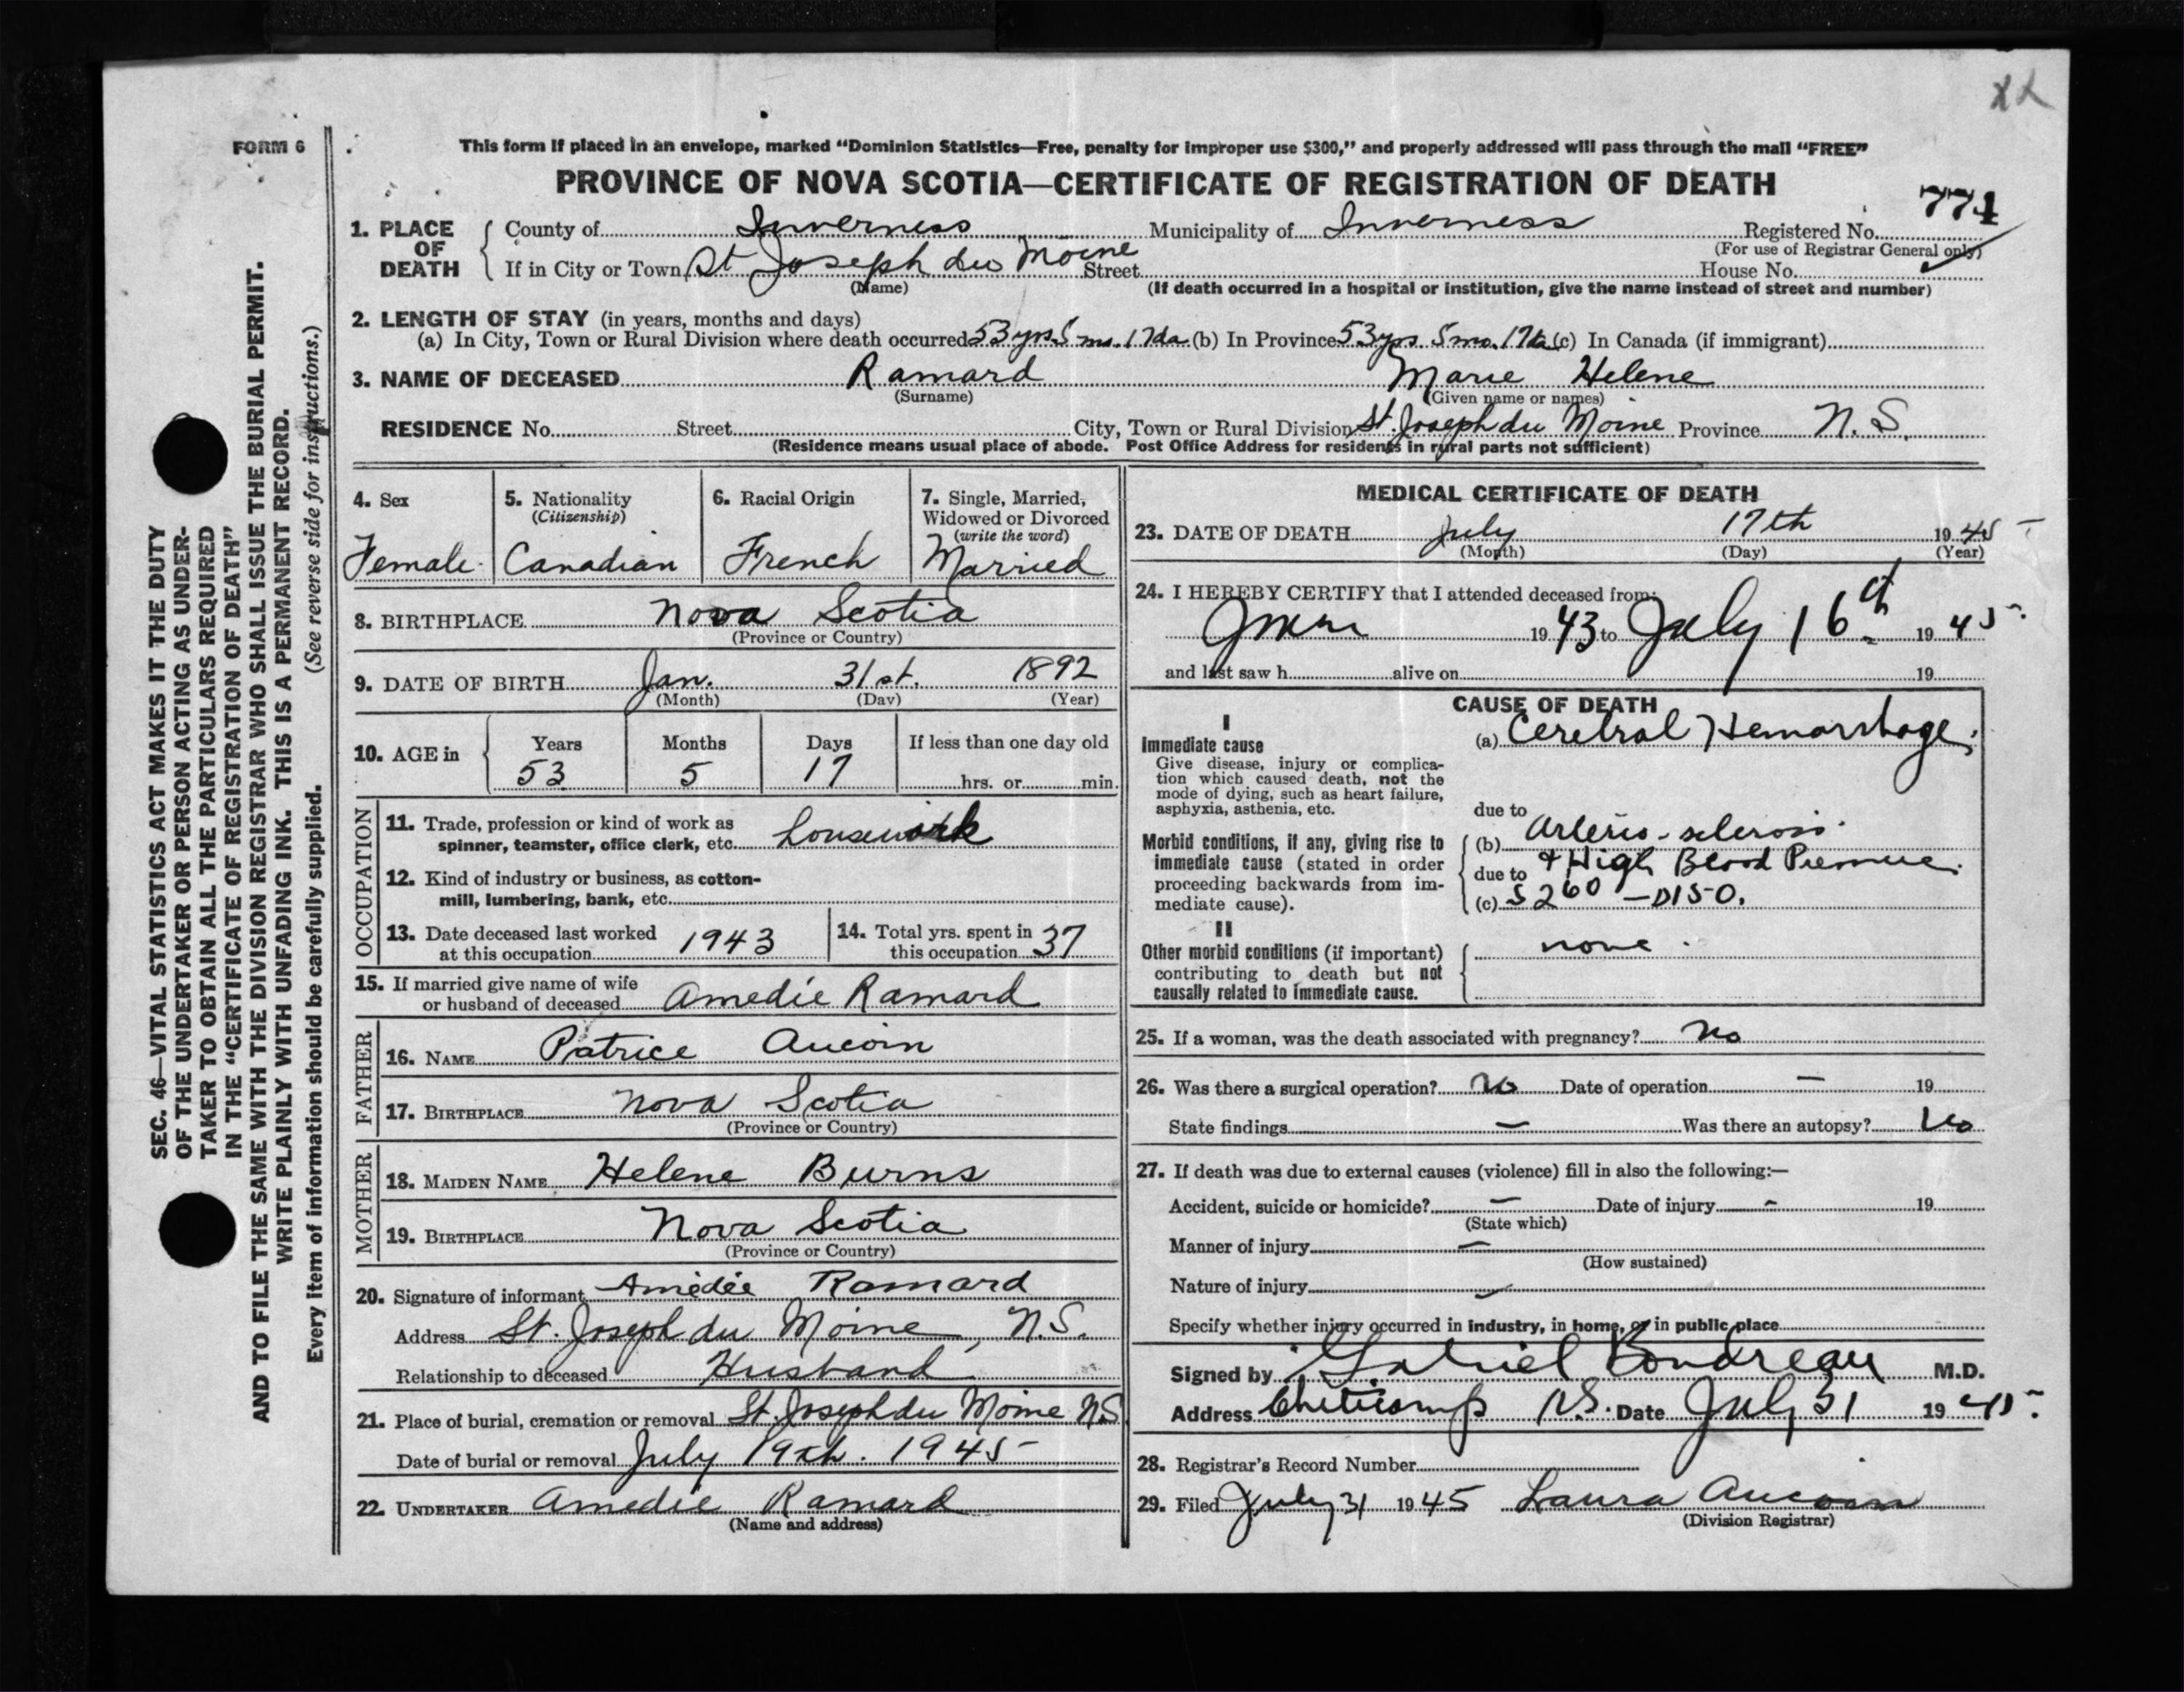 XX
FORM 6
This form if placed in an envelope, marked “Dominion Statistics—Free, penalty for improper use $300,” and properly addressed will pass through the mail “FREE”
PROVINCE OF NOVA SCOTIA—CERTIFICATE OF REGISTRATION OF DEATH
771
1. PLACE OF DEATH
County of Inverness Municipality of Inverness Registered No.
(For use of Registrar General only)
If in City or Town St Joseph du Moine Street House No.
(Name) (If death occurred in a hospital or institution, give the name instead of street and number)
2. LENGTH OF STAY (in years, months and days)
(a) In City, Town or Rural Division where death occurred 53 yrs 5 mo. 17 da (b) In Province 53 yrs 5 mo. 17 da (c) In Canada (if immigrant)
3. NAME OF DECEASED Ramard Marie Helene
(Surname) (Given name or names)
RESIDENCE No. Street City, Town or Rural Division St. Joseph du Moine Province N. S.
(Residence means usual place of abode. Post Office Address for residents in rural parts not sufficient)
4. Sex
Female
5. Nationality
(Citizenship)
Canadian
6. Racial Origin
French
7. Single, Married,
Widowed or Divorced
(write the word)
Married
8. BIRTHPLACE Nova Scotia
(Province or Country)
9. DATE OF BIRTH Jan. 31st. 1892
(Month) (Day) (Year)
10. AGE in
Years Months Days If less than one day old
53 5 17 hrs. or min.
OCCUPATION
11. Trade, profession or kind of work as
spinner, teamster, office clerk, etc. housework
12. Kind of industry or business, as cotton-
mill, lumbering, bank, etc.
13. Date deceased last worked
at this occupation 1943
14. Total yrs. spent in
this occupation 37
15. If married give name of wife
or husband of deceased Amedie Ramard
FATHER
16. NAME Patrice Aucoin
17. BIRTHPLACE Nova Scotia
(Province or Country)
MOTHER
18. MAIDEN NAME Helene Burns
19. BIRTHPLACE Nova Scotia
(Province or Country)
20. Signature of informant Amédée Ramard
Address St. Joseph du Moine, N.S.
Relationship to deceased Husband
21. Place of burial, cremation or removal St. Joseph du Moine N.S
Date of burial or removal July 19th. 1945
22. UNDERTAKER Amedie Ramard
(Name and address)
MEDICAL CERTIFICATE OF DEATH
23. DATE OF DEATH July 17th 1945
(Month) (Day) (Year)
24. I HEREBY CERTIFY that I attended deceased from:
1943 to July 16th 1945
and last saw h alive on 19
CAUSE OF DEATH
I
Immediate cause
Give disease, injury or complica-
tion which caused death, not the
mode of dying, such as heart failure,
asphyxia, asthenia, etc.
(a) Cerebral Hemorrhage
due to
Morbid conditions, if any, giving rise to
immediate cause (stated in order
proceeding backwards from im-
mediate cause).
(b) Arterio-sclerosis
due to + High Blood Pressure.
(c) S260 — D150.
II
Other morbid conditions (if important)
contributing to death but not
causally related to immediate cause.
none.
25. If a woman, was the death associated with pregnancy? No
26. Was there a surgical operation? No Date of operation — 19
State findings — Was there an autopsy? No
27. If death was due to external causes (violence) fill in also the following:—
Accident, suicide or homicide? — Date of injury — 19
(State which)
Manner of injury —
(How sustained)
Nature of injury
Specify whether injury occurred in industry, in home, or in public place
Signed by Gabriel Boudreau M.D.
Address Cheticamp N.S. Date July 31 1945
28. Registrar's Record Number
29. Filed July 31 1945 Laura Aucoin
(Division Registrar)
SEC. 46—VITAL STATISTICS ACT MAKES IT THE DUTY
OF THE UNDERTAKER OR PERSON ACTING AS UNDER-
TAKER TO OBTAIN ALL THE PARTICULARS REQUIRED
IN THE “CERTIFICATE OF REGISTRATION OF DEATH”
AND TO FILE THE SAME WITH THE DIVISION REGISTRAR WHO SHALL ISSUE THE BURIAL PERMIT.
WRITE PLAINLY WITH UNFADING INK. THIS IS A PERMANENT RECORD.
Every item of information should be carefully supplied. (See reverse side for instructions.)